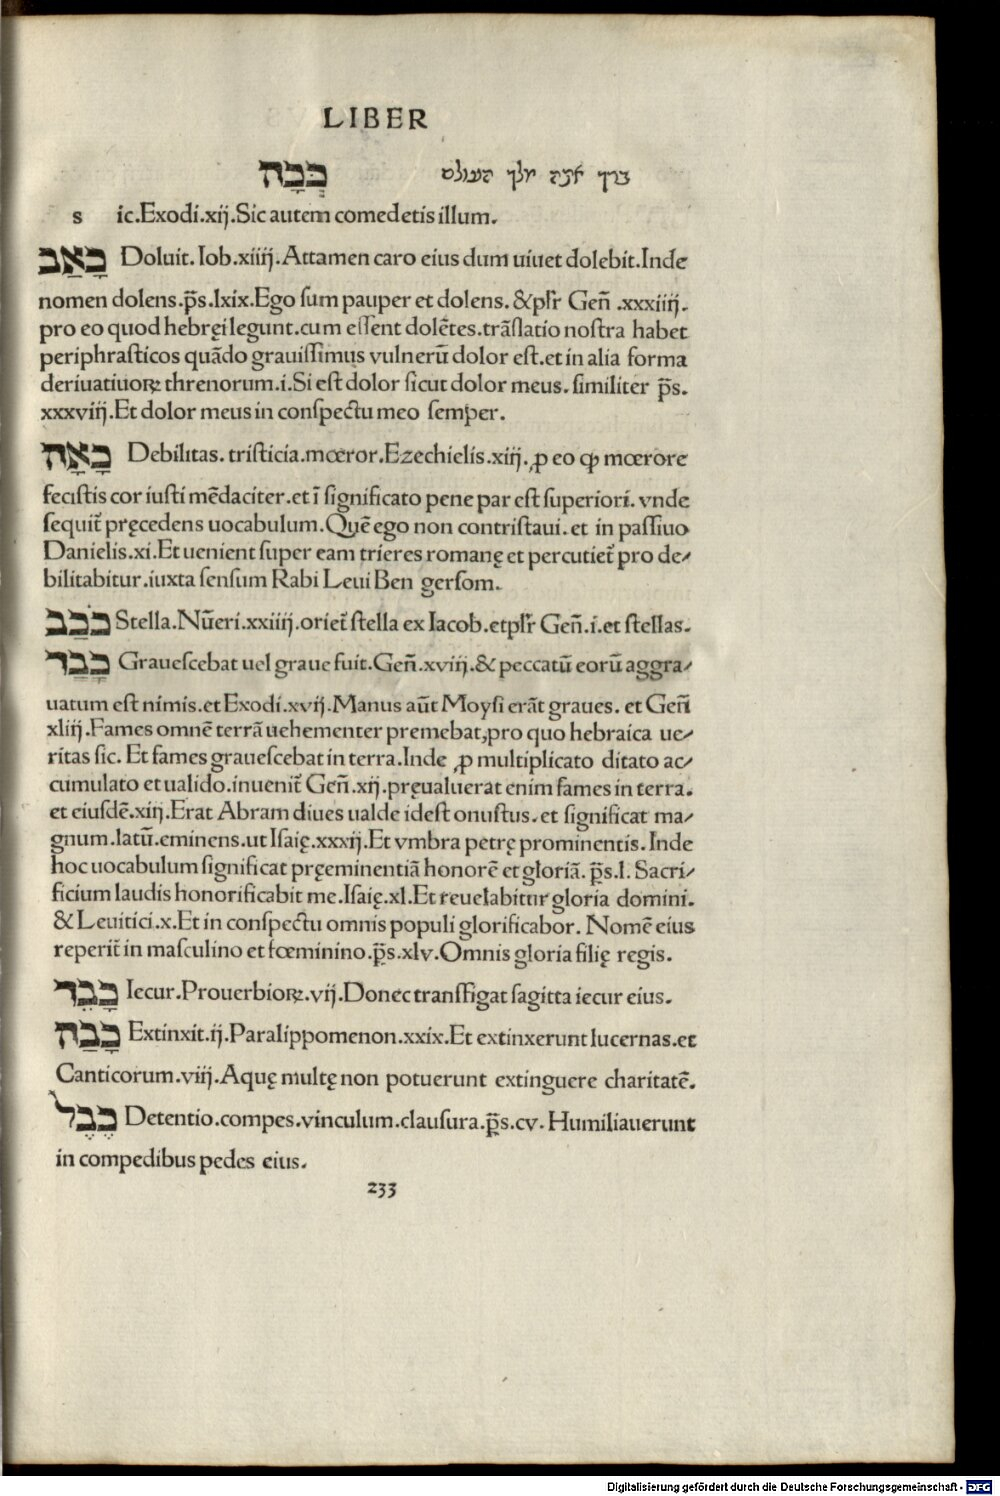 LIBER
כָּכָה ברך אתה מלך העולם
s ic.Exodi.xij.Sic autem comedetis illum.
כָּאַב Doluit. Iob.xiiij.Attamen caro eius dum uiuet dolebit.Inde
nomen dolens.p̄s.lxix.Ego ſum pauper et dolens.&plr̄ Gen̄.xxxiiij.
pro eo quod hebręi legunt.cum eſſent dolētes.trāſlatio noſtra habet
periphraſticos quādo grauiſſimus vulnerū dolor eſt.et in alia forma
deriuatiuoꝝ threnorum.i.Si eſt dolor ſicut dolor meus.ſimiliter p̄s.
xxxvij.Et dolor meus in conſpectu meo ſemper.
כָּאָה Debilitas.triſticia.mœror.Ezechielis.xiij.ꝓ eo ꝙ mœrore
feciſtis cor iuſti mēdaciter.et ī ſignificato pene par eſt ſuperiori.vnde
ſequit̄ pręcedens uocabulum.Quē ego non contriſtaui.et in paſſiuo
Danielis.xi.Et uenient ſuper eam trieres romanę et percutiet̄ pro de⸗
bilitabitur.iuxta ſenſum Rabi Leui Ben gerſom.
כֹּכַב Stella.Nūeri.xxiiij.oriet̄ ſtella ex Iacob.etplr̄ Gen̄.i.et ſtellas.
כָּבַד Graueſcebat uel graue fuit.Gen̄.xviij.& peccatū eorū aggra⸗
uatum eſt nimis.et Exodi.xvij.Manus aūt Moyſi erāt graues. et Gen̄
xliij.Fames omnē terrā uehementer premebat,pro quo hebraica ue⸗
ritas ſic.Et fames graueſcebat in terra.Inde ꝓ multiplicato ditato ac⸗
cumulato et ualido.inuenit̄ Gen̄.xij.pręualuerat enim fames in terra.
et eiuſdē.xiij.Erat Abram diues ualde ideſt onuſtus.et ſignificat ma⸗
gnum.latū.eminens.ut Iſaię.xxxij.Et vmbra petrę prominentis.Inde
hoc uocabulum ſignificat pręeminentiā honorē et gloriā.p̄s.l.Sacri⸗
ficium laudis honorificabit me.Iſaię.xl.Et reuelabitur gloria domini.
& Leuitici.x.Et in conſpectu omnis populi glorificabor.Nomē eius
reperit̄ in maſculino et fœminino.p̄s.xlv.Omnis gloria filię regis.
כָּבֵד Iecur.Prouerbioꝝ.vij.Donec tranſfigat ſagitta iecur eius.
כָּבַה Extinxit.ij.Paralippomenon.xxix.Et extinxerunt lucernas.et
Canticorum.viij.Aquę multę non potuerunt extinguere charitatē.
כֶּבֶל Detentio.compes.vinculum.clauſura.p̄s.cv.Humiliauerunt
in compedibus pedes eius.
233
Digitalisierung gefördert durch die Deutsche Forschungsgemeinschaft - DFG